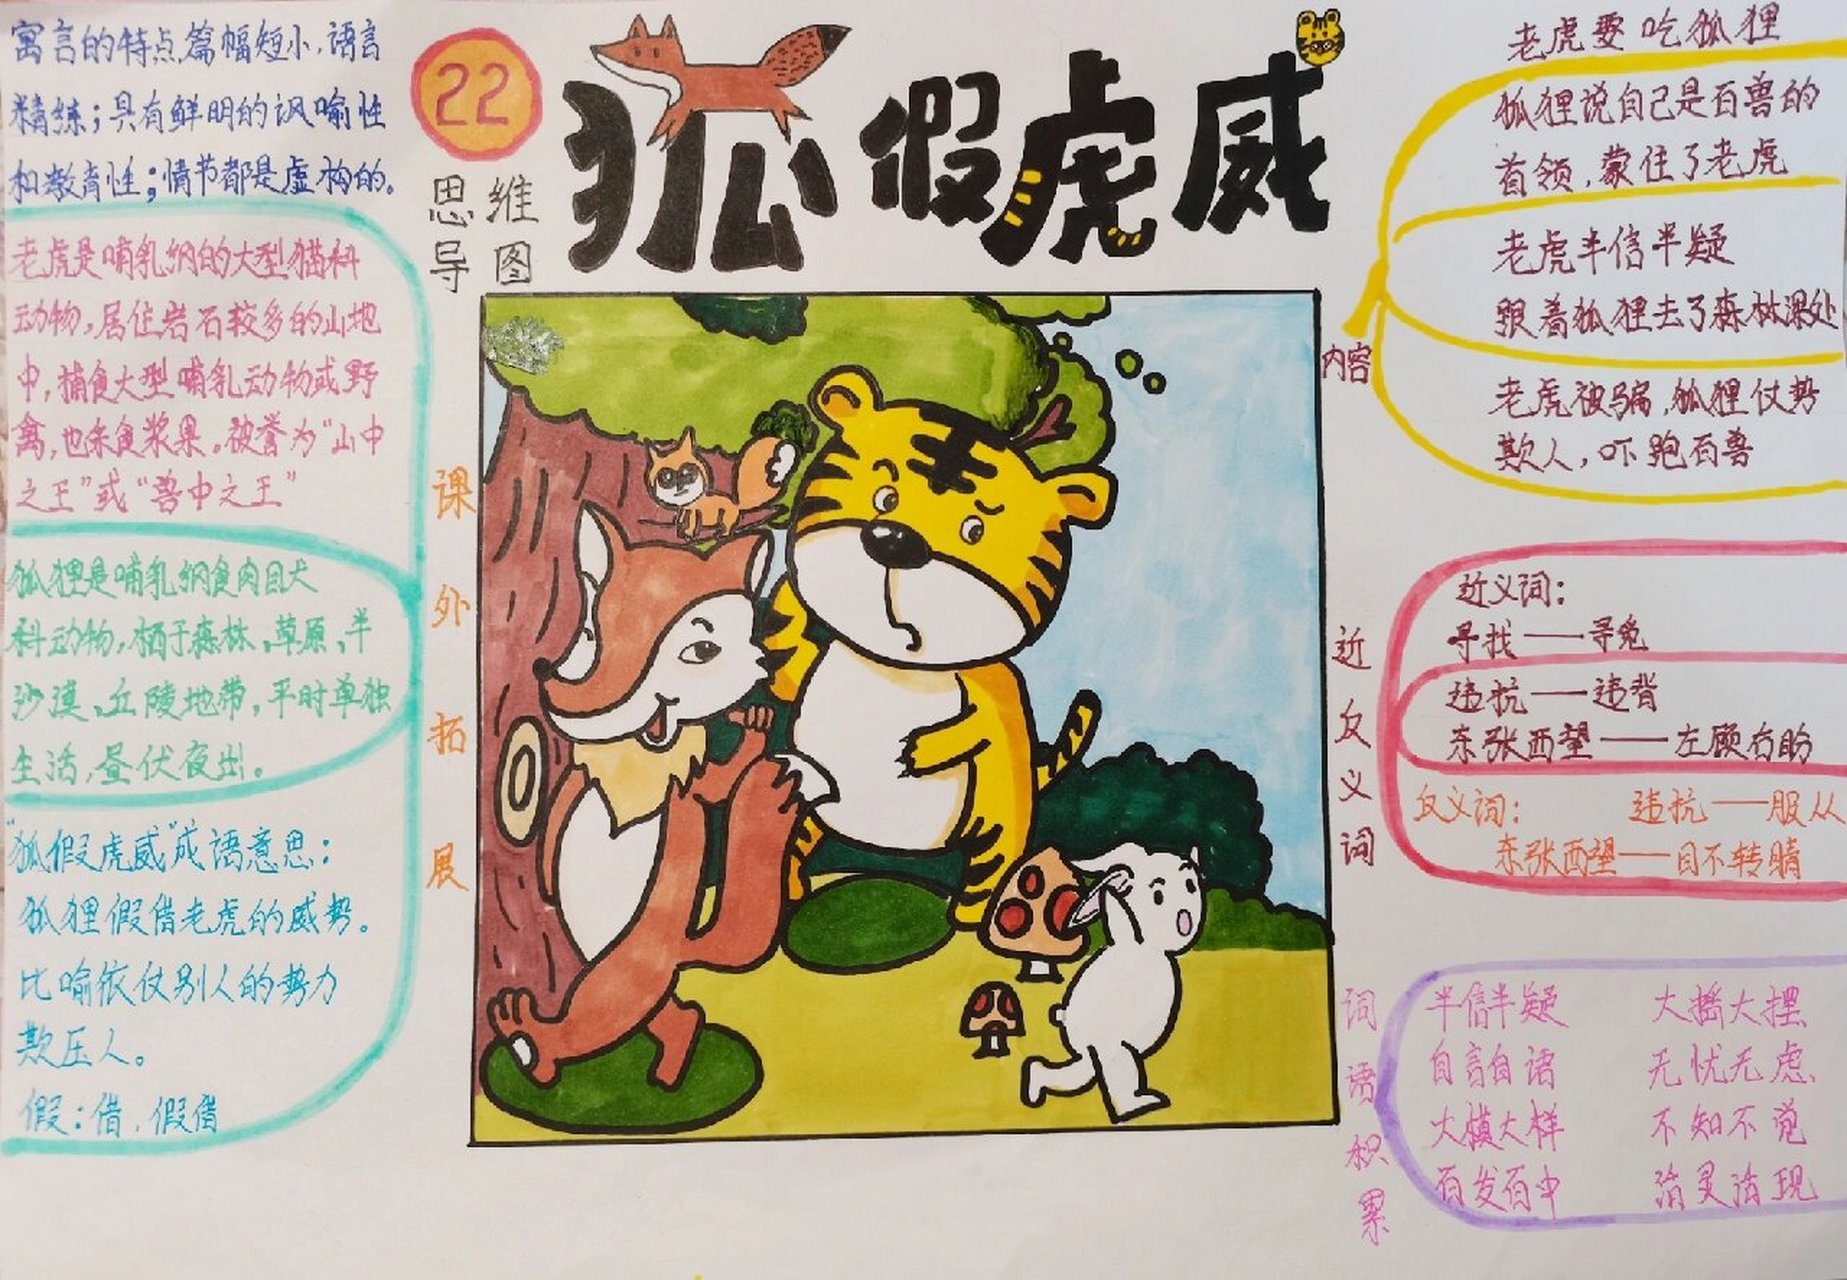 22
狐假虎威
思维
导图
寓言的特点,篇幅短小,语言
精练;具有鲜明的讽喻性
和教育性;情节都是虚构的。
课外拓展
老虎是哺乳纲的大型猫科
动物,居住岩石较多的山地
中,捕食大型哺乳动物或野
禽,也杂食浆果。被誉为“山中
之王”或“兽中之王”
狐狸是哺乳纲食肉目犬
科动物,栖于森林、草原、半
沙漠、丘陵地带,平时单独
生活,昼伏夜出。
“狐假虎威”成语意思:
狐狸假借老虎的威势。
比喻依仗别人的势力
欺压人。
假:借,假借
内容
老虎要吃狐狸
狐狸说自己是百兽的
首领,蒙住了老虎
老虎半信半疑
跟着狐狸去了森林深处
老虎被骗,狐狸仗势
欺人,吓跑百兽
近反义词
近义词:
寻找——寻觅
违抗——违背
东张西望——左顾右盼
反义词: 违抗——服从
东张西望——目不转睛
词语积累
半信半疑 大摇大摆
自言自语 无忧无虑
大模大样 不知不觉
百发百中 活灵活现